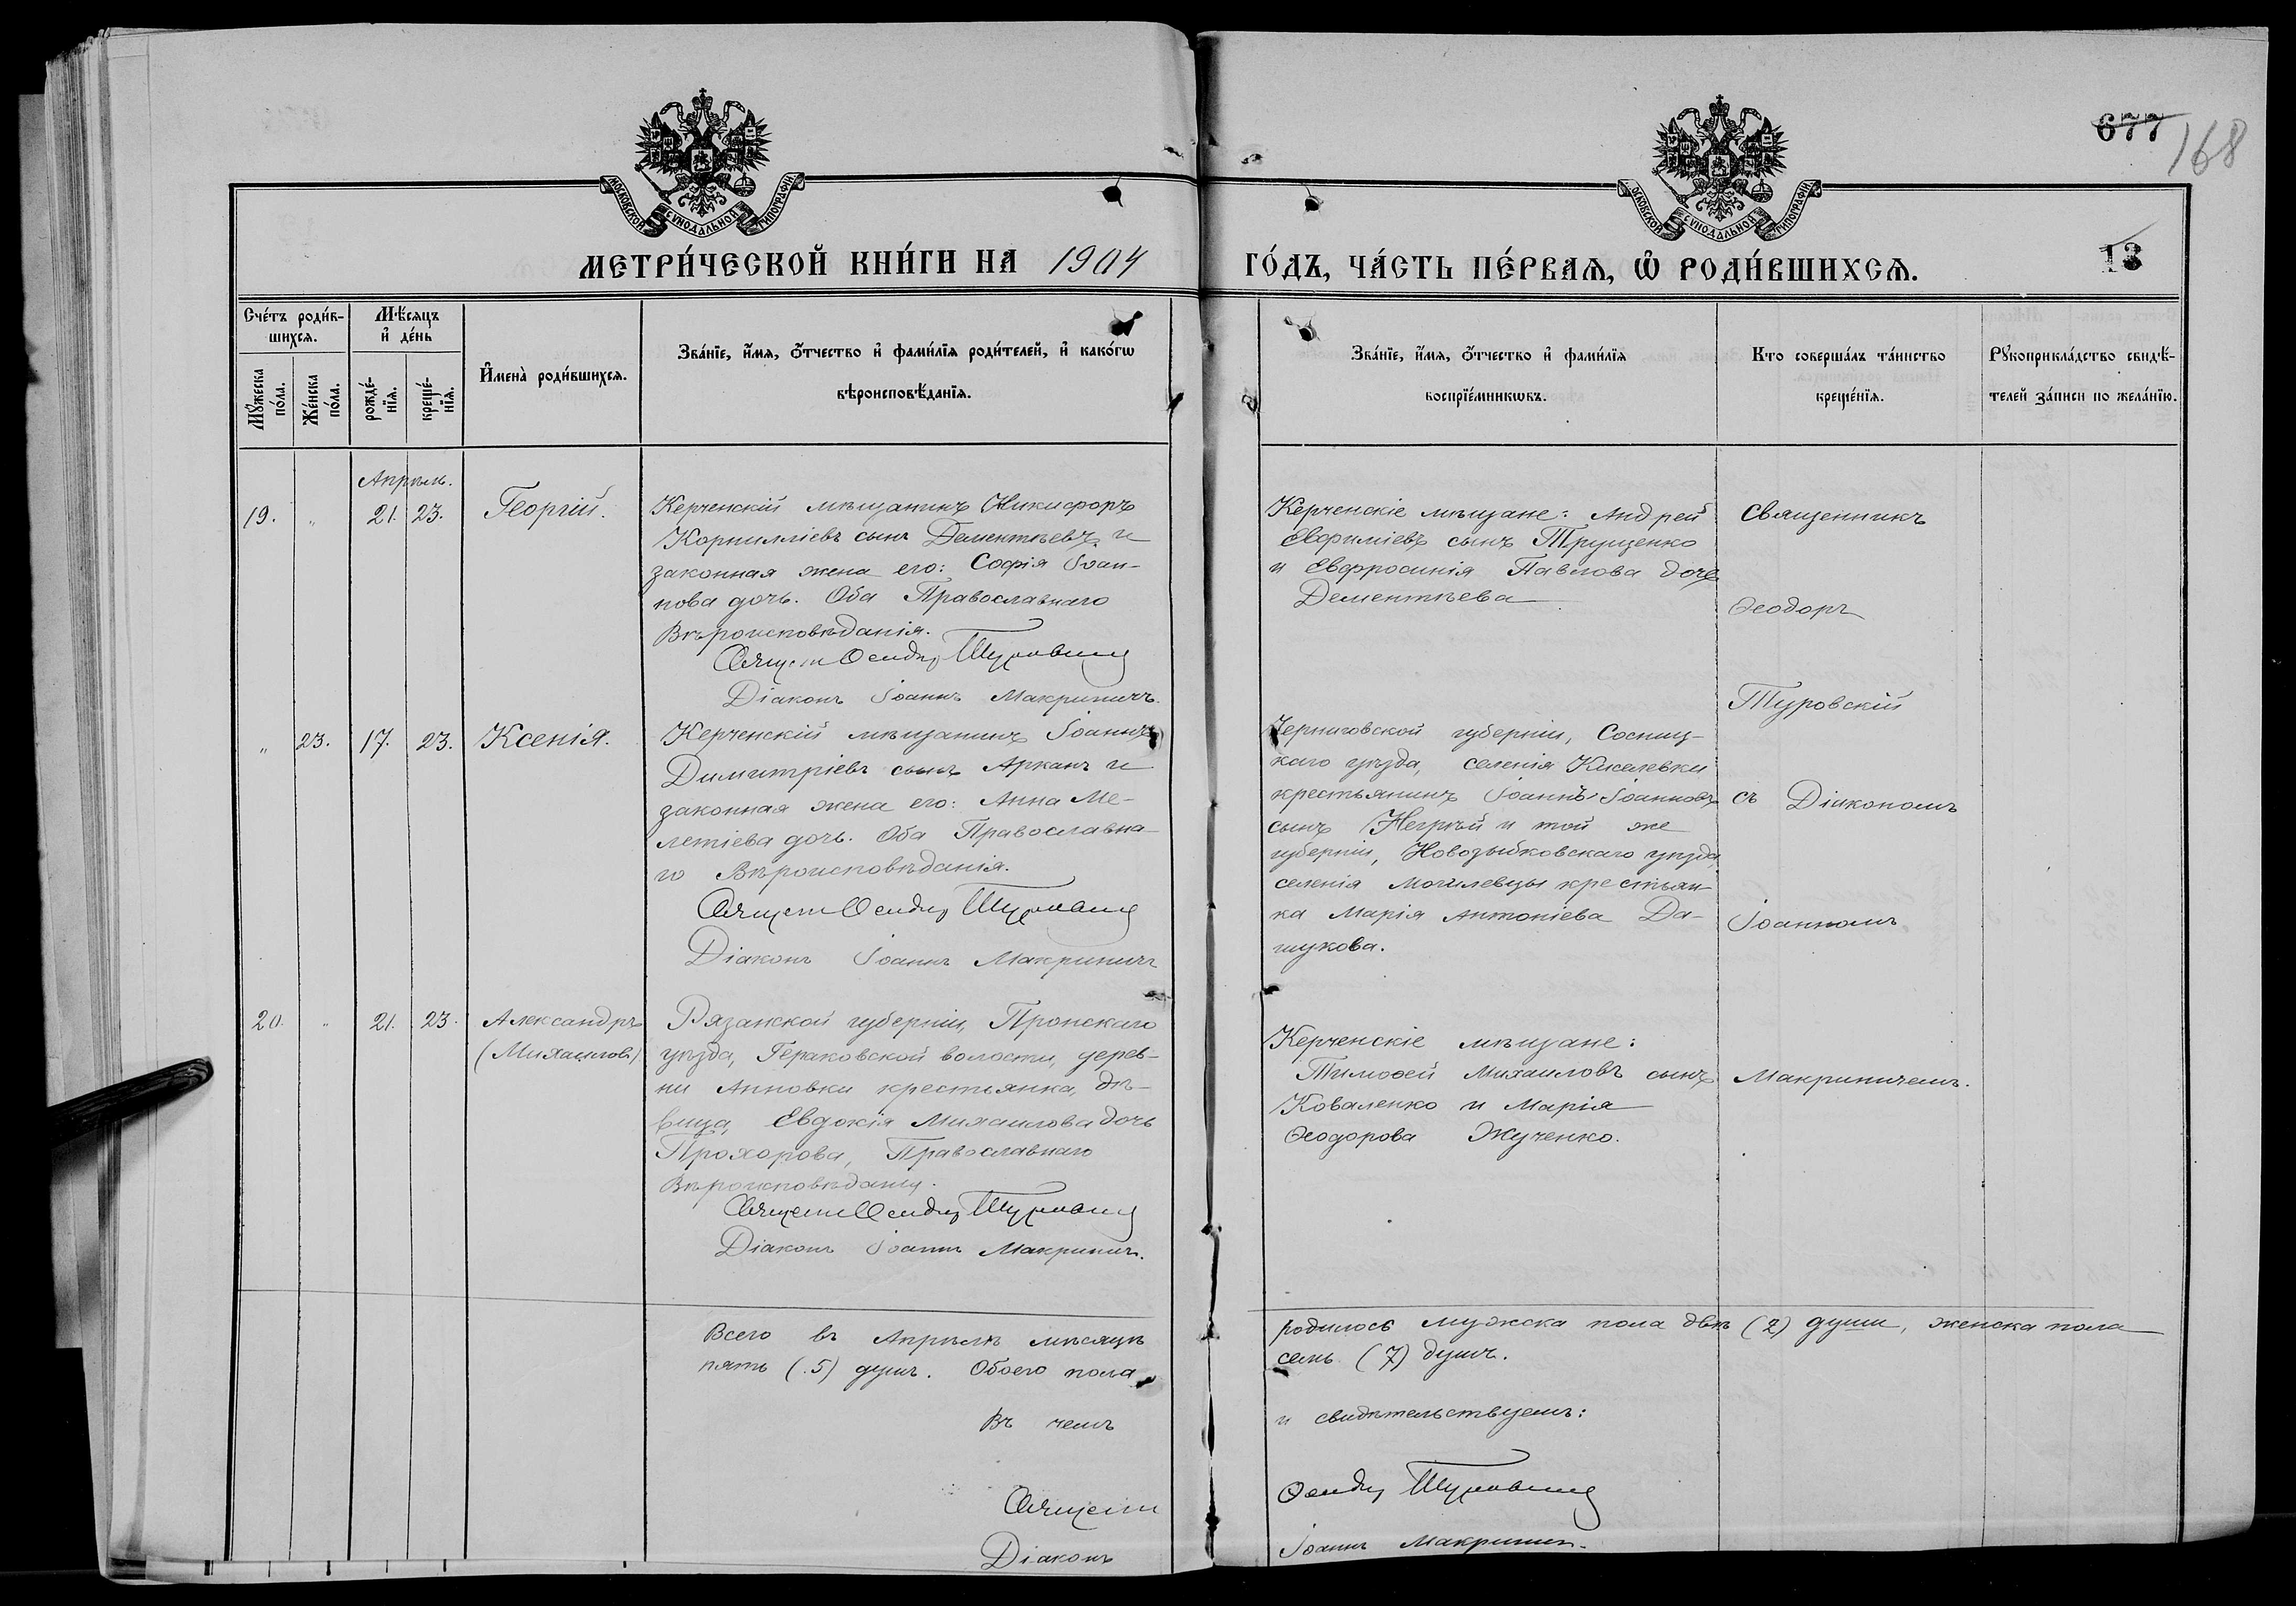 677
168
МОСКОВСКОЙ СѴНОДАЛЬНОЙ ТИПОГРАФІИ
МОСКОВСКОЙ СѴНОДАЛЬНОЙ ТИПОГРАФІИ
МЕТРИ́ЧЕСКОЙ КНИ́ГИ НА 1904
ГО́ДЪ, ЧА́СТЬ ПЕ́РВАѦ, Ѡ РОДИ́ВШИХСѦ.
13
Сче́тъ роди́в-
шихсѧ.
Мꙋ́жеска
по́ла.
Же́нска
по́ла.
Мѣ́сѧцъ
и҆ де́нь
рожде́-
нїѧ.
креще́-
нїѧ.
И҆мена̀ роди́вшихсѧ.
Зва́нїе, и҆́мѧ, ѻ҆́тчество и҆ фами́лїѧ роди́телей, и҆ како́гѡ
вѣроисповѣ́данїѧ.
Зва́нїе, и҆́мѧ, ѻ҆́тчество и҆ фами́лїѧ
воспрїе́мникѡвъ.
Кто соверша́лъ та́инство
креще́нїѧ.
Рꙋкоприкла́дство свидѣ́-
телей за́писи по жела́нїю.
Апрѣль.
19. " 21. 23. Георгій.
Керченскій мѣщанинъ Никифоръ
Корниліевъ сынъ Дементьевъ и
законная жена его: Софія Іоан-
нова дочь. Оба Православнаго
Вѣроисповѣданія.
Священ Ѳеодоръ Туровскій
Діаконъ Іоаннъ Макриничъ.
Керченскіе мѣщане: Андрей
Евфиміевъ сынъ Трущенко
и Евфросинія Павлова дочь
Дементьева
Священникъ
Ѳеодоръ
Туровскій
съ Діакономъ
Іоанномъ
Макриничемъ.
" 23. 17. 23. Ксенія.
Керченскій мѣщанинъ Іоаннъ
Димитріевъ сынъ Арканъ и
законная жена его: Анна Ме-
летіева дочь. Оба Православна-
го Вѣроисповѣданія.
Священ Ѳеодоръ Туровскій
Діаконъ Іоаннъ Макриничъ
Черниговской губерніи, Сосниц-
каго уѣзда, селенія Киселевки
крестьянинъ Іоаннъ Іоанновъ
сынъ Негрѣй и той же
губерніи, Новозыбковскаго уѣзда
селенія Могилевцы крестьян-
ка Марія Антоніева Да-
шукова.
20. " 21. 23. Александръ
(Михаиловъ)
Рязанской губерніи, Пронскаго
уѣзда, Гераковской волости, дерев-
ни Анновки крестьянка, дѣ-
вица, Евдокія Михаилова дочь
Прохорова, Православнаго
Вѣроисповѣданія.
Священ Ѳеодоръ Туровскій
Діаконъ Іоаннъ Макриничъ.
Керченскіе мѣщане:
Тимоѳей Михаиловъ сынъ
Коваленко и Марія
Ѳеодорова Жученко.
Всего въ Апрѣлѣ мѣсяцѣ родилось мужска пола двѣ (2) души, женска пола
пять (5) душъ. Обоего пола семь (7) душъ.
Въ чемъ и свидѣтельствуемъ:
Священ Ѳеодоръ Туровскій
Діаконъ Іоаннъ Макриничъ.